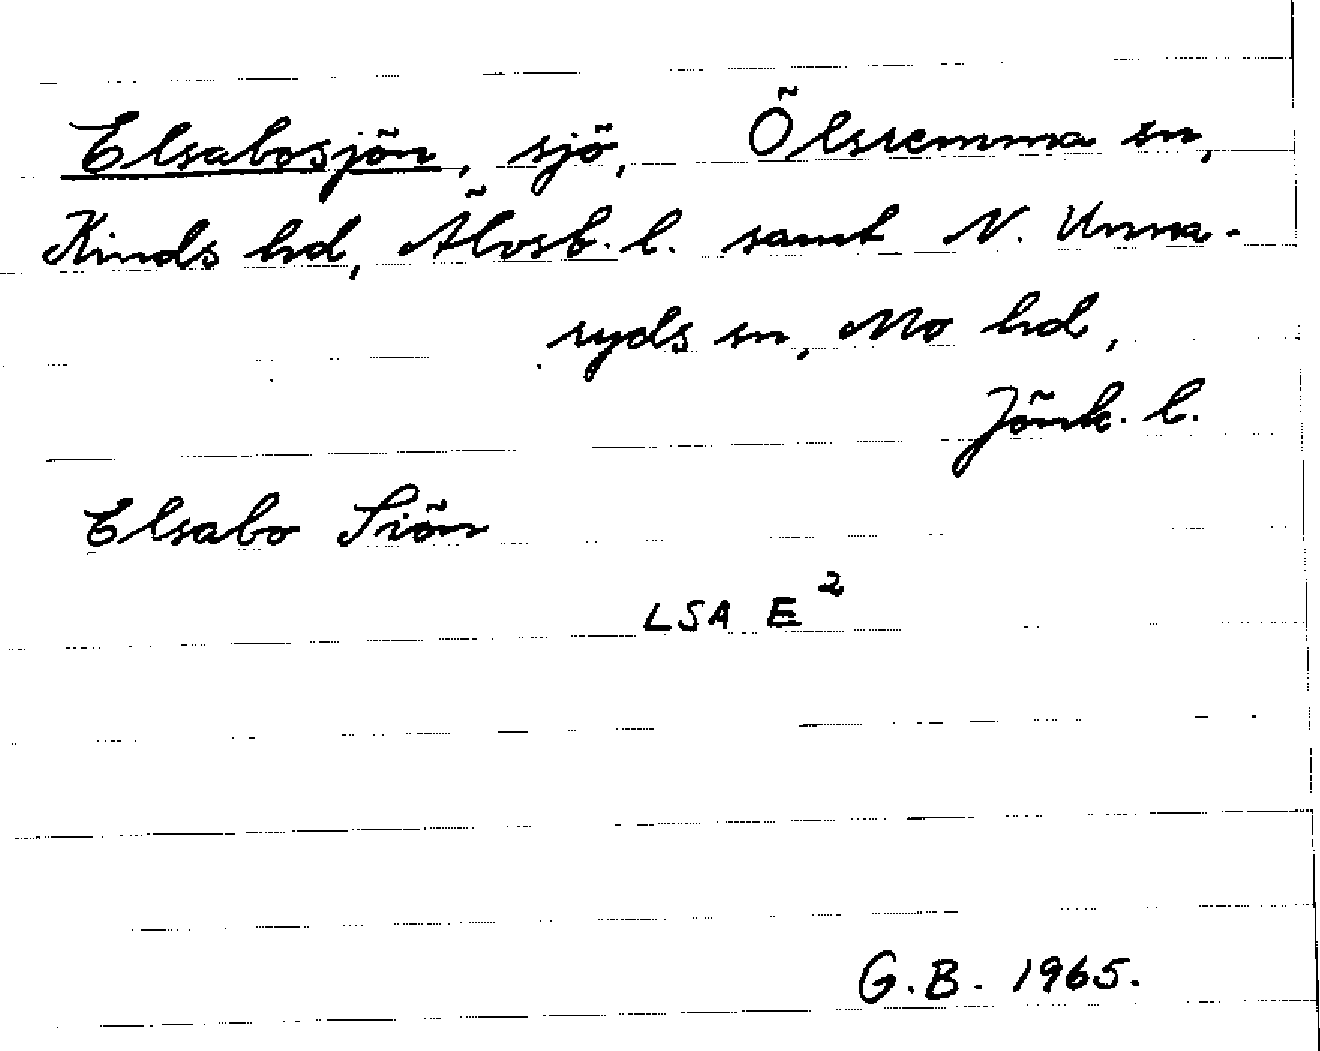 Elsabosjön, sjö, Ölsremma sn,
Kinds hd, Älvsb. l. samt N. Unna-
ryds sn, Mo hd,
Jönk. l.
Elsabo Siön
LSA E²
G.B. 1965.